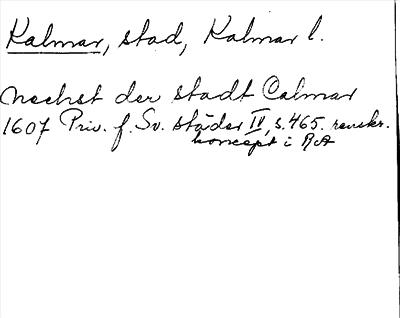 Kalmar, stad, Kalmar l.
nechst der stadt Calmar
1607 Priv. f. Sv. städer IV, s. 465. renskr.
koncept i RA